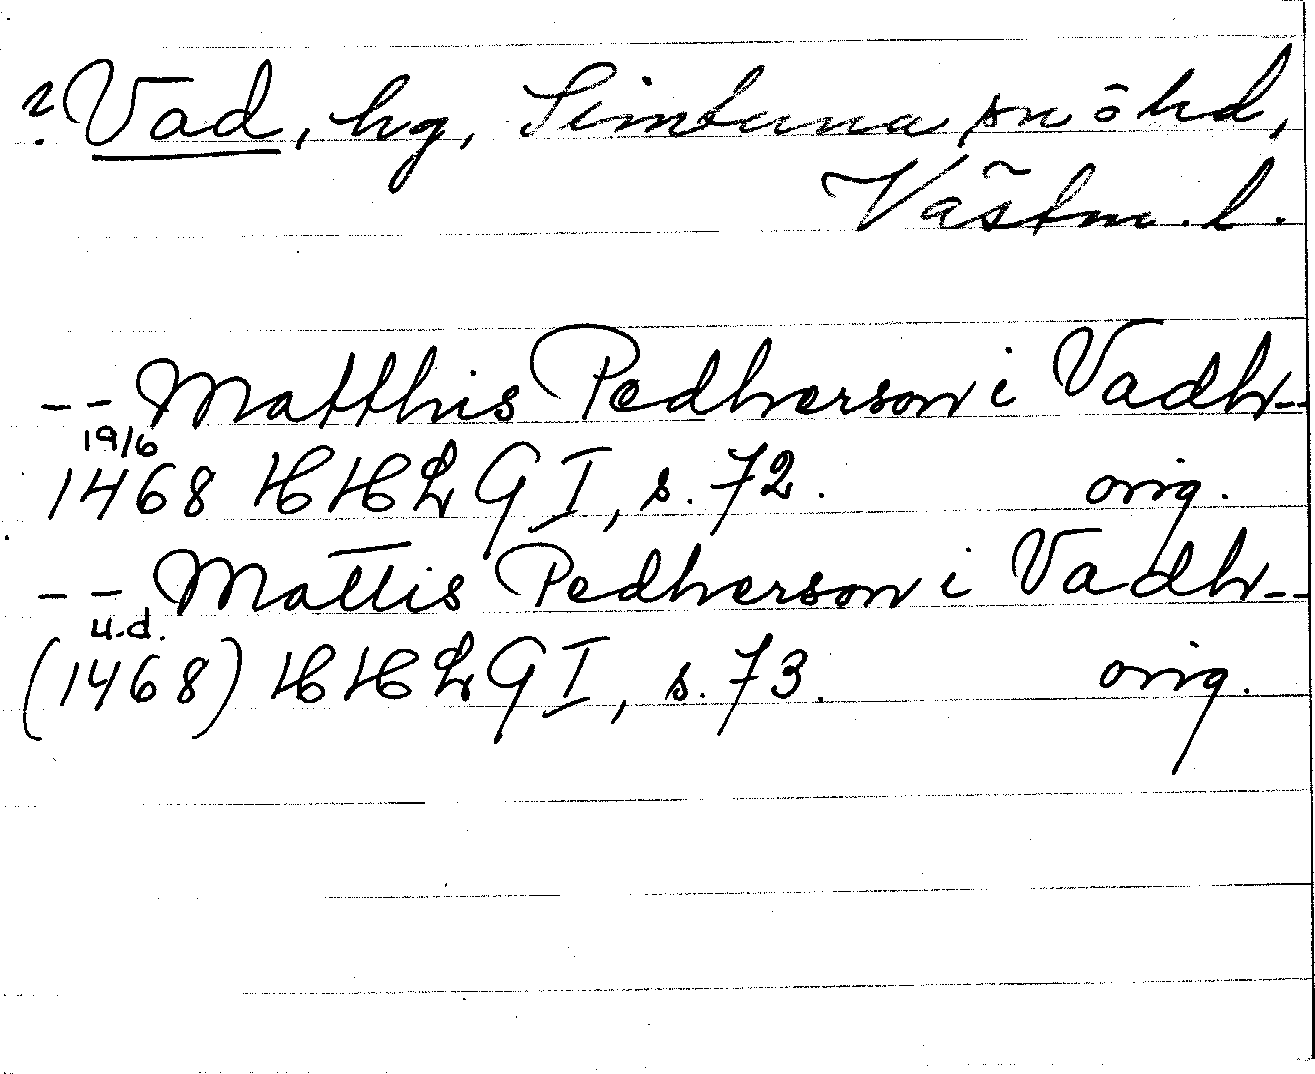 ? Vad, hg, Simtuna sn ō hd,
Västm. l.
-- Matthis Pedherson i Vadh --
19/6
1468 HHLG I, s. 72. orig.
-- Mattis Pedherson i Vadh --
u.d.
(1468) HHLG I, s. 73. orig.